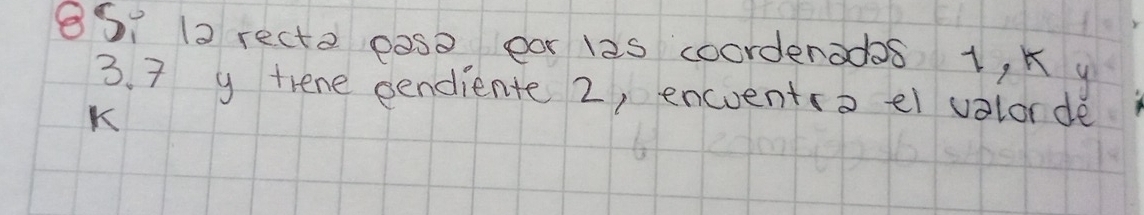 8 Si la recta pasa por las coordenadas 1, K y
3.7 y tiene pendiente 2, encuentra el valor de
K